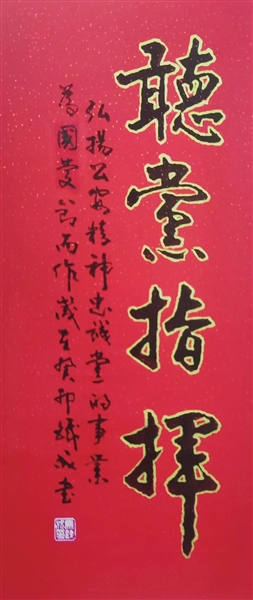 聽黨指揮
弘揚公安精神忠誠黨的事業
為國慶節而作歲在癸卯斌永書